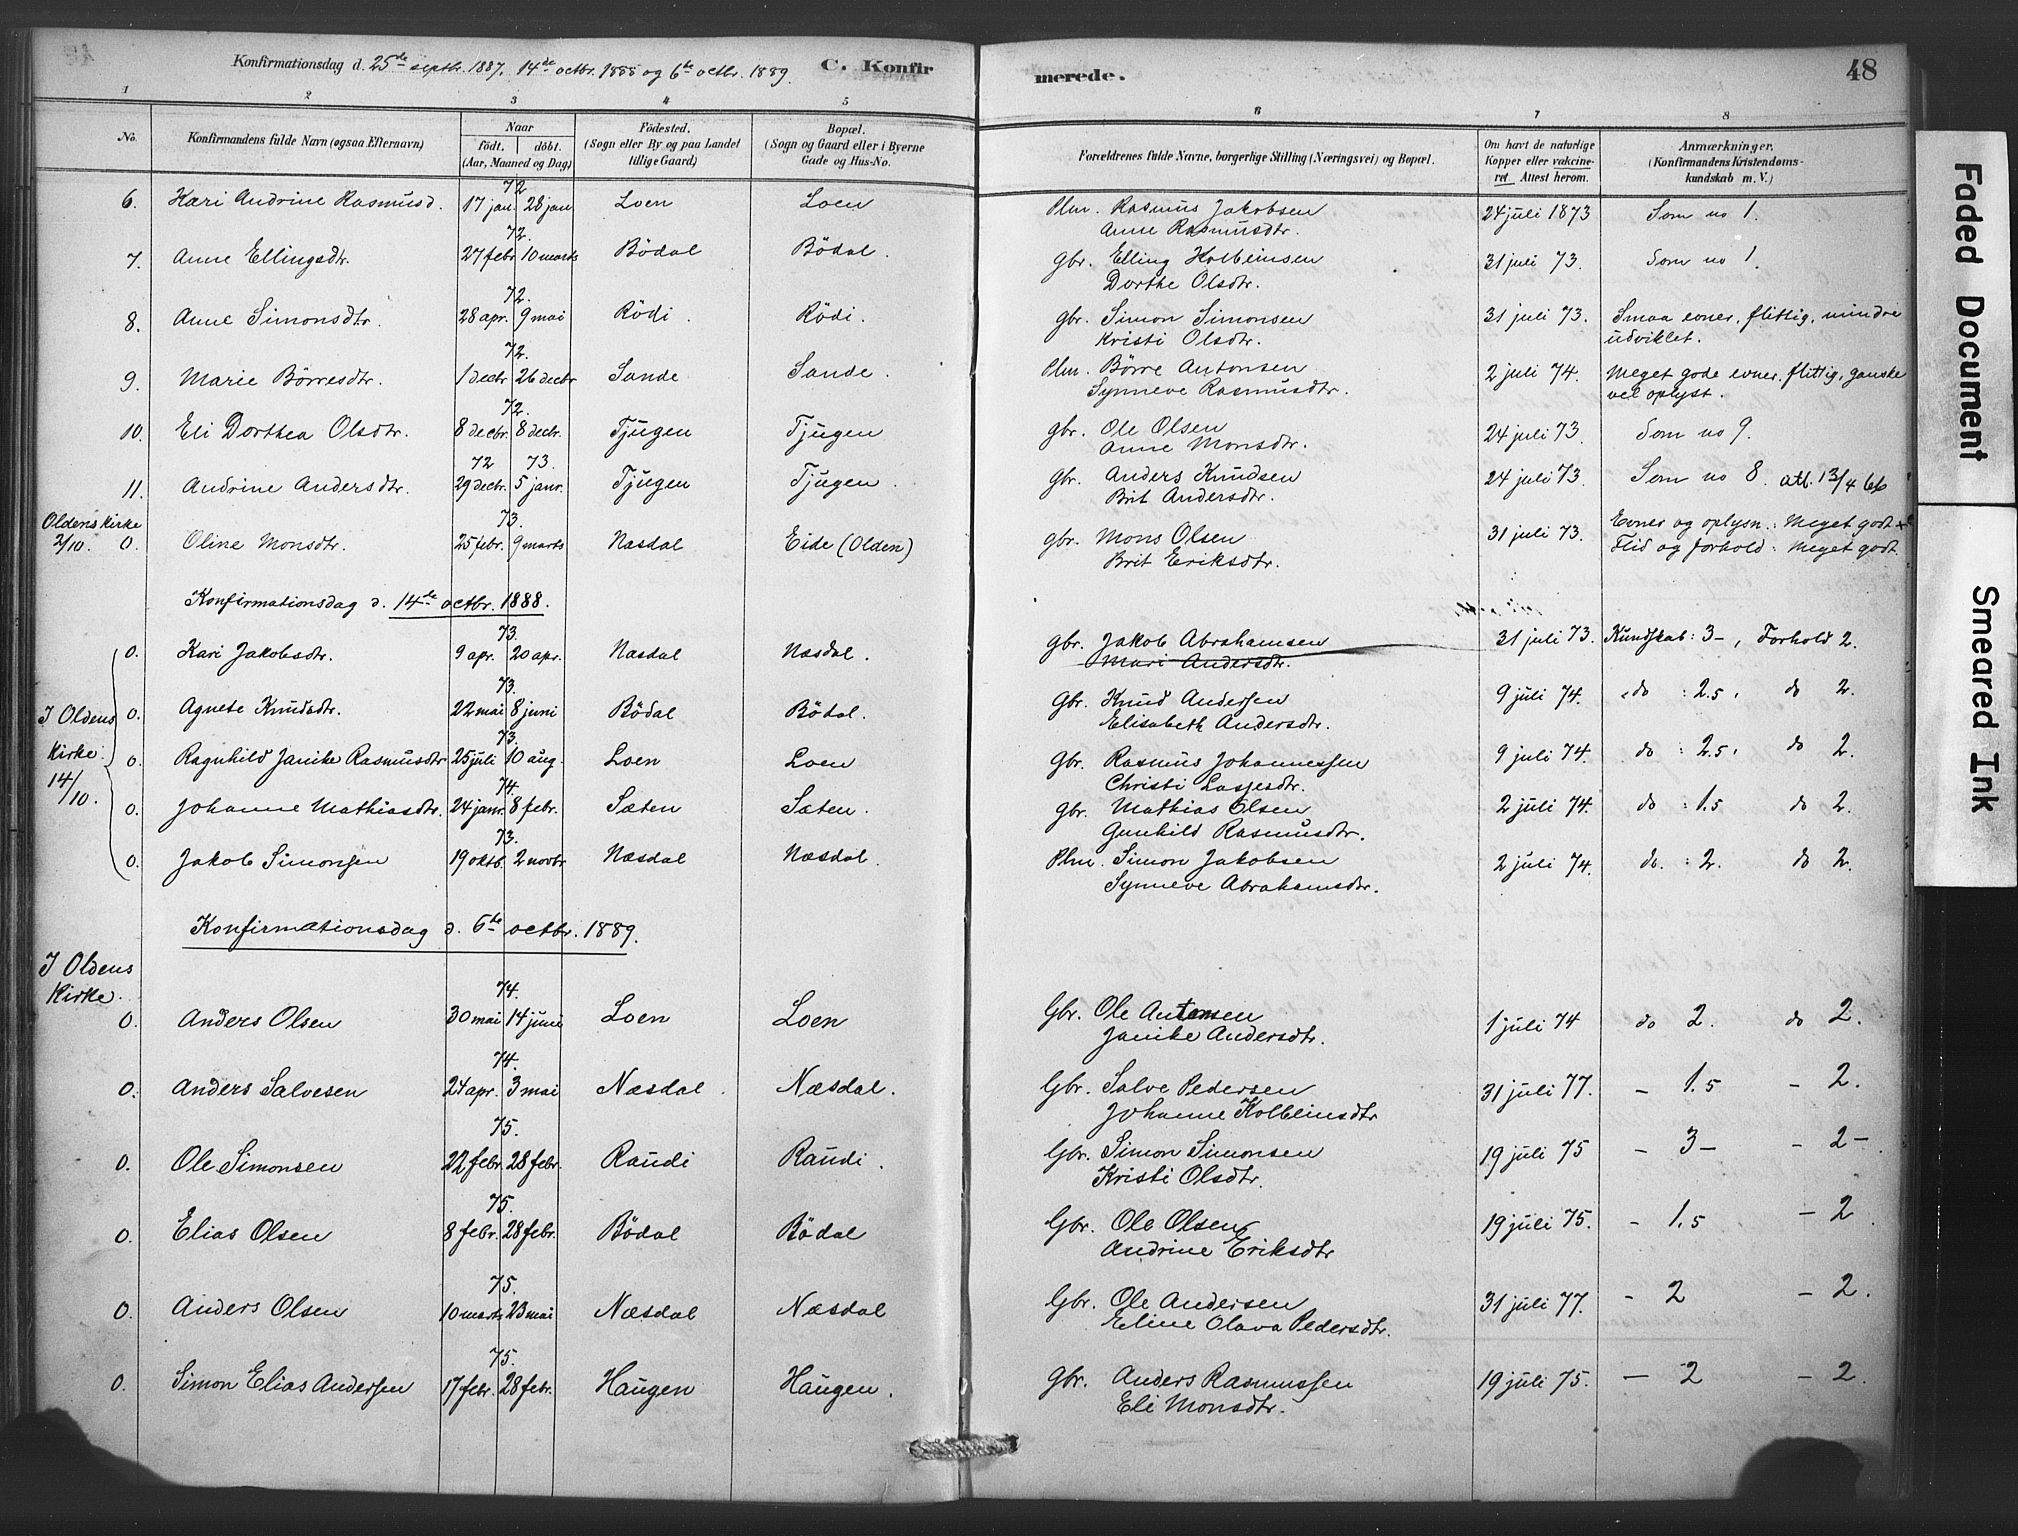 Konfirmationsdag d. 25de septbr. 1887, 14de octbr. 1888 og 6te octbr. 1889. C. Konfirmerede. 48
1 2 3 4 5 6 7 8
No. Konfirmandens fulde Navn (ogsaa Efternavn) Naar født. døbt. (Aar, Maaned og Dag) Födested. (Sogn eller By og paa Landet tillige Gaard) Bopæl. (Sogn og Gaard eller i Byerne Gade og Hus-No. Forældrenes fulde Navne, borgerlige Stilling (Næringsvei) og Bopæl. Om havt de naturlige Kopper eller vakcineret. Attest herom. Anmærkninger. (Konfirmandens Kristendomskundskab m. V.)
72
6. Kari Andrine Rasmusd. 17 jan. 28 jan Loen Loen Plm. Rasmus Jakobsen 24 juli 1873 Som no 1.
Anne Rasmusdtr.
72.
7. Anne Ellingsdtr. 27 febr 10 marts Bödal Bödal. gbr. Elling Kolbeinsen 31 juli 73. Som no 1.
Dorthe Olsdtr.
72.
8. Anne Simonsdtr. 28 apr. 9 mai Rödi. Rödi. gbr. Simon Simonsen 31 juli 73. Smaa evner, flittig, mindre
Kristi Olsdtr. udviklet.
72.
9. Marie Börresdtr. 1 decbr 26 decbr Sande Sande. Plm. Börre Antonsen 2 juli 74. Meget gode evner, flittig, ganske
Synneve Rasmusdtr. vel oplyst.
72.
10. Eli Dorthea Olsdtr. 8 decbr. 8 decbr. Tjugen Tjugen gbr. Ole Olsen 24 juli 73. Som no 9.
Anne Monsdtr.
72 73.
11. Andrine Andersdtr. 29 decbr. 5 janr. Tjugen Tjugen. gbr. Anders Knudsen 24 juli 73. Som no 8. att. 13/4
Brit Andersdtr.
Oldens kirke 73.
2/10. 0. Oline Monsdtr. 25 febr. 9 marts Nasdal Eide (Olden) gbr. Mons Olsen 31 juli 73. Evner og oplysn.: Meget godt
Brit Eriksdtr. Flid og forhold: Meget godt
Konfirmationsdag d. 14de octbr. 1888.
73.
0. Kari Jakobsdtr. 9 apr. 20 apr. Nasdal Nasdal. gbr. Jakob Abrahamsen 31 juli 73. Kundskab: 3-, Forhold 2.
Mari Andersdtr.
73.
I Oldens 0. Agnete Knudsdtr. 22 mai 8 juni Bödal Bödal. Gbr. Knud Andersen 9 juli 74. do : 2.5, do 2.
Elisabeth Andersdtr.
73.
Kirke: 0. Ragnhild Janike Rasmusdtr 25 juli 10 aug. Loen Loen Gbr. Rasmus Johannessen 9 juli 74. do : 2.5, do 2.
Christi Lassesdtr.
14/10. 74.
0. Johanne Mathiasdtr. 24 janr. 8 febr. Sæten Sæten. gbr. Mathias Olsen 2 juli 74. do : 1.5 do 2.
Gunhild Rasmusdtr.
73.
0. Jakob Simonsen 19 oktb. 2 novbr Næsdal Næsdal. Plm. Simon Jakobsen 2 juli 74. do. : 2. do 2.
Synneve Abrahamsdtr.
Konfirmationsdag d. 6te octbr. 1889.
I Oldens
Kirke. 74.
0. Anders Olsen 30 mai 14 juni Loen Loen Gbr. Ole Antonsen 1 juli 74 do 2. do 2.
Janike Andersdtr.
74.
0. Anders Salvesen 24 apr. 3 mai Næsdal. Næsdal. Gbr. Salve Pedersen 31 juli 77. - 1.5 - 2.
Johanne Kolbeinsdtr
75.
0. Ole Simonsen 22 febr. 28 febr. Raudi Raudi. Gbr. Simon Simonsen 19 juli 75 - 3- - 2-
Kristi Olsdtr.
75.
0. Elias Olsen 8 febr. 28 febr. Bödal Bödal Gbr. Ole Olsen 19 juli 75. - 1.5 - 2
Andrine Eriksdtr
75.
0. Anders Olsen 10 marts 23 mai Næsdal Næsdal Gbr. Ole Andersen 31 juli 77. - 2 - 2.
Eline Olava Pedersdtr.
75.
0. Simon Elias Andersen 17 febr. 28 febr. Haugen Haugen. Gbr. Anders Rasmussen 19 juli 75. - 2 - 2.
Eli Monsdtr.
Faded Document
Smeared Ink